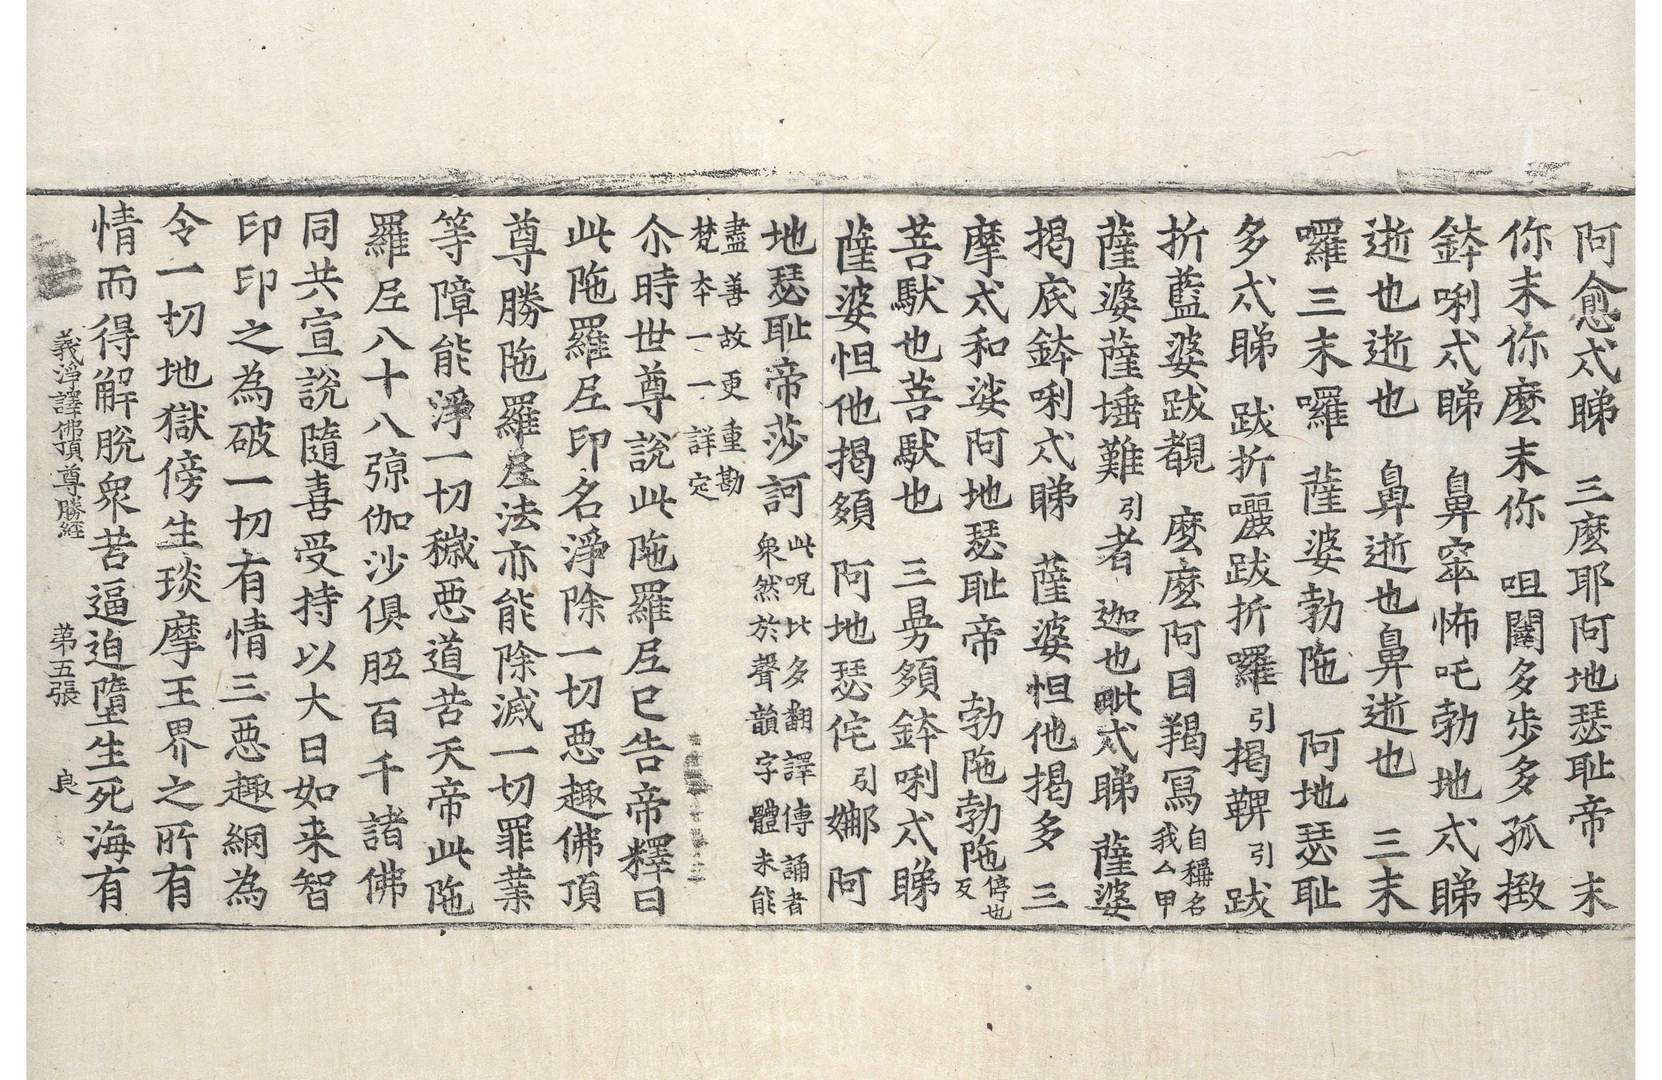 阿愈忒睇　三麼耶阿地瑟耻帝　末
你末你麼末你　咀闥多步多孤㨖
鉢唎忒睇　鼻窣怖吒勃地忒睇
逝也逝也　鼻逝也鼻逝也　三末
囉三末囉　薩婆勃陁　阿地瑟耻
多忒睇　跋折囇跋折囉引揭鞞引跋
折藍婆跋覩　麼麼阿目羯寫自稱名我厶甲
薩婆薩埵難引者　迦也毗忒睇　薩婆
揭底鉢唎忒睇　薩婆怛他揭多　三
摩忒和娑阿地瑟耻帝　勃陁勃陁停也反
菩馱也菩馱也　三曼頞鉢唎忒睇
薩婆怛他揭頞　阿地瑟侘引娜　阿
地瑟耻帝莎訶此呪比多翻譯傳誦者衆然於聲韻字體未能
盡善故更重勘梵本一一詳定
尒時世尊說此陁羅尼已告帝釋曰
此陁羅尼印名淨除一切惡趣佛頂
尊勝陁羅尼法亦能除滅一切罪業
等障能淨一切穢惡道苦天帝此陁
羅尼八十八殑伽沙俱胝百千諸佛
同共宣說隨喜受持以大日如来智
印印之為破一切有情三惡趣網為
令一切地獄傍生琰摩王界之所有
情而得解脫衆苦逼迫墮生死海有
義淨譯佛頂尊勝經　第五張　良